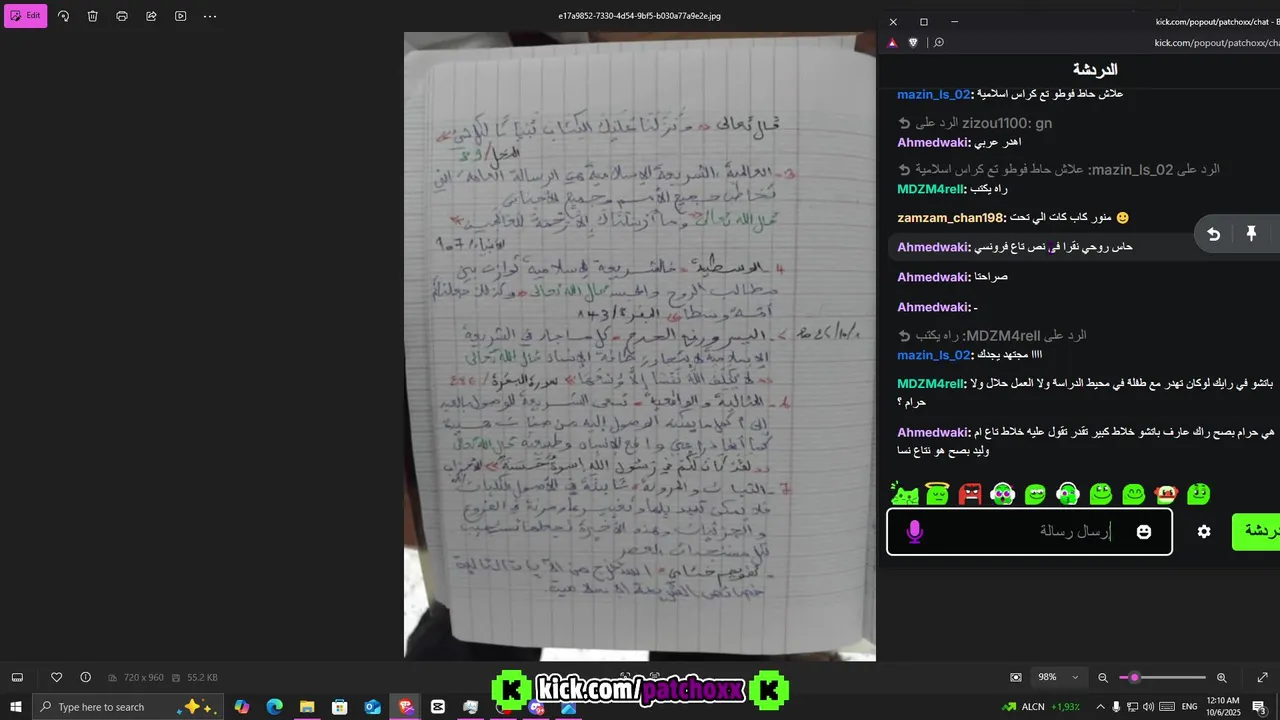 Edit
e17a9852-7330-4d54-9bf5-b030a77a9e2e.jpg
قال تعالى « ونزلنا عليك الكتاب تبيانا لكل شيء »
النحل/89
3- العالمية: الشريعة الإسلامية هي الرسالة العامة التي
تخاطب جميع الأمم وجميع الأجناس
قال الله تعالى « وما أرسلناك إلا رحمة للعالمين »
الأنبياء/107
4- الوسطية: فالشريعة الإسلامية توازن بين
مطالب الروح والجسد قال الله تعالى « وكذلك جعلناكم
أمة وسطا » البقرة/143
اليسر ورفع الحرج: كل ما جاء في الشريعة
الإسلامية لا يتجاوز طاقة الإنسان قال الله تعالى
« لا يكلف الله نفسا إلا وسعها » سورة البقرة/286
6- المثالية والواقعية: تسعى الشريعة للوصول بالعبد
إلى أكمل ما يمكنه الوصول إليه من
كما أنها تراعي واقع الإنسان وطبيعته قال الله تعالى
« لقد كان لكم في رسول الله أسوة حسنة » الأحزاب
7- الثبات والمرونة: ثابتة في الأصول والكليات
فلا يمكن تبديلها أو تغييرها ومرنة في الفروع
والجزئيات وهذه الأخيرة تجعلها تستجيب
لكل مستجدات العصر
- تقويم ختامي: استخرج من الآيات التالية
خصائص الشريعة الإسلامية.
720 x 960
55.2 KB
kick.com/popout/patchoxx/chat - B
kick.com/popout/patchoxx/cha
الدردشة
mazin_ls_02: علاش حاط فوطو تع كراس اسلامية
الرد على zizou1100: gn
Ahmedwaki: اهدر عربي
الرد على mazin_ls_02: علاش حاط فوطو تع كراس اسلامية
MDZM4rell: راه يكتب
zamzam_chan198: منور كاب كات الي تحت
Ahmedwaki: حاس روحي نقرا في نص تاع فرونسي
Ahmedwaki: صراحتا
Ahmedwaki: -
الرد على MDZM4rell: راه يكتب
mazin_ls_02: اااا مجتهد يجدك
MDZM4rell: باتشو في رايك لوكان تهدر مع طفلة في محيط الدراسة ولا العمل حلال ولا
حرام ؟
Ahmedwaki: هي حرام بصح راك عارف باتشو خلاط كبير تقدر تقول عليه خلاط تاع ام
وليد بصح هو نتاع نسا
إرسال رسالة
دردشة
K kick.com/patchoxx K
Type here to search
ALCN +1,93%
ENG
12:10 AM
10/6/2025